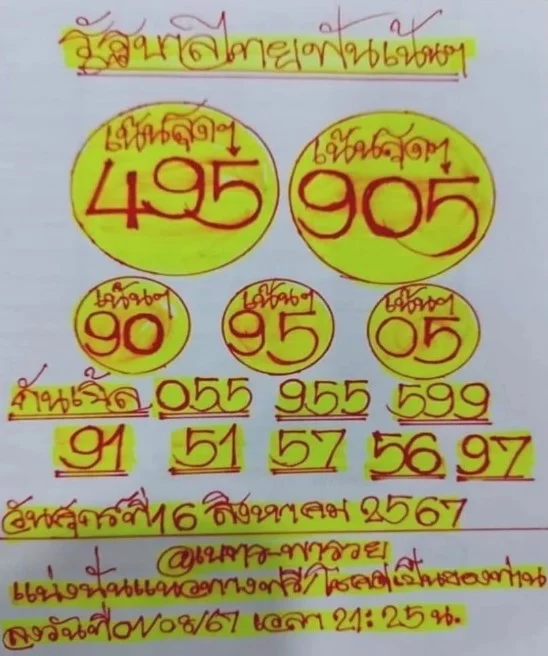 รัฐบาลไทยฟันเน้นๆ
เน้นสุดๆ เน้นสุดๆ
495 905
เน้นๆ เน้นๆ เน้นๆ
90 95 05
กันเบิ้ล 055 955 599
91 51 57 56 97
วันศุกร์ที่ 16 สิงหาคม 2567
@เนทระพารวย
แบ่งปันแนวทางฟรี/โชคดีเป็นของท่าน
ลงวันที่ 01/08/67 เวลา 21:25 น.